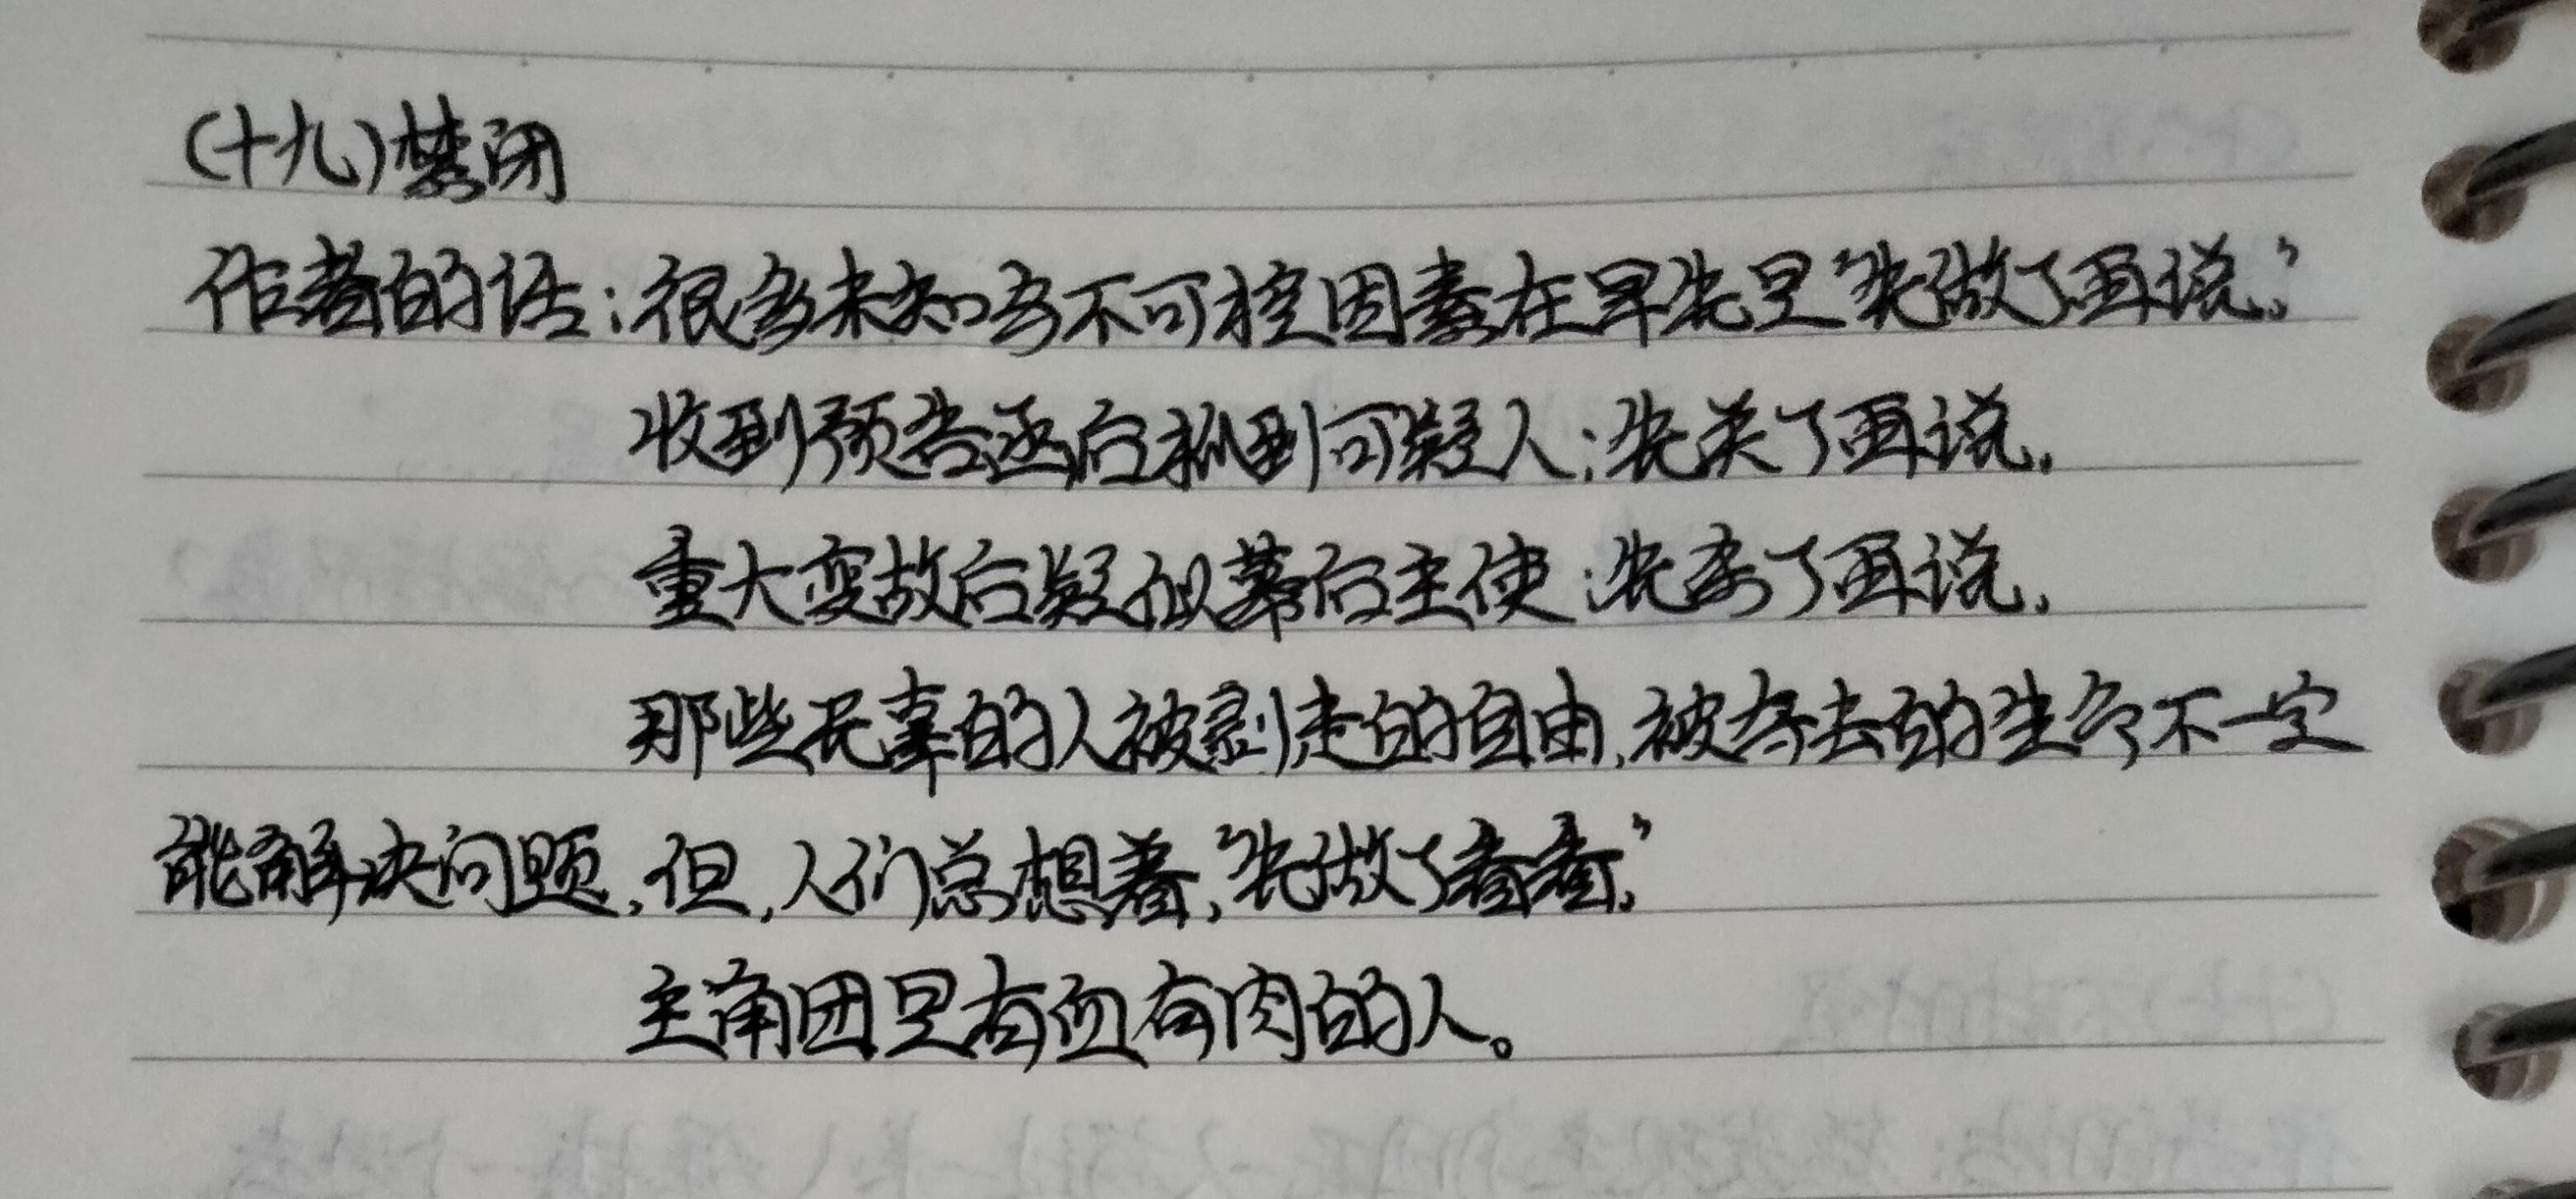 (十九)禁闭
作者的话:很多未知与不可控因素在早先是“先做了再说”
收到预告函后抓到可疑人:先关了再说.
重大变故后疑似幕后主使:先杀了再说.
那些无辜的人被剥走的自由,被夺去的生命不一定
能解决问题,但,人们总想着,“先做了看看,”
主角团是有血有肉的人。